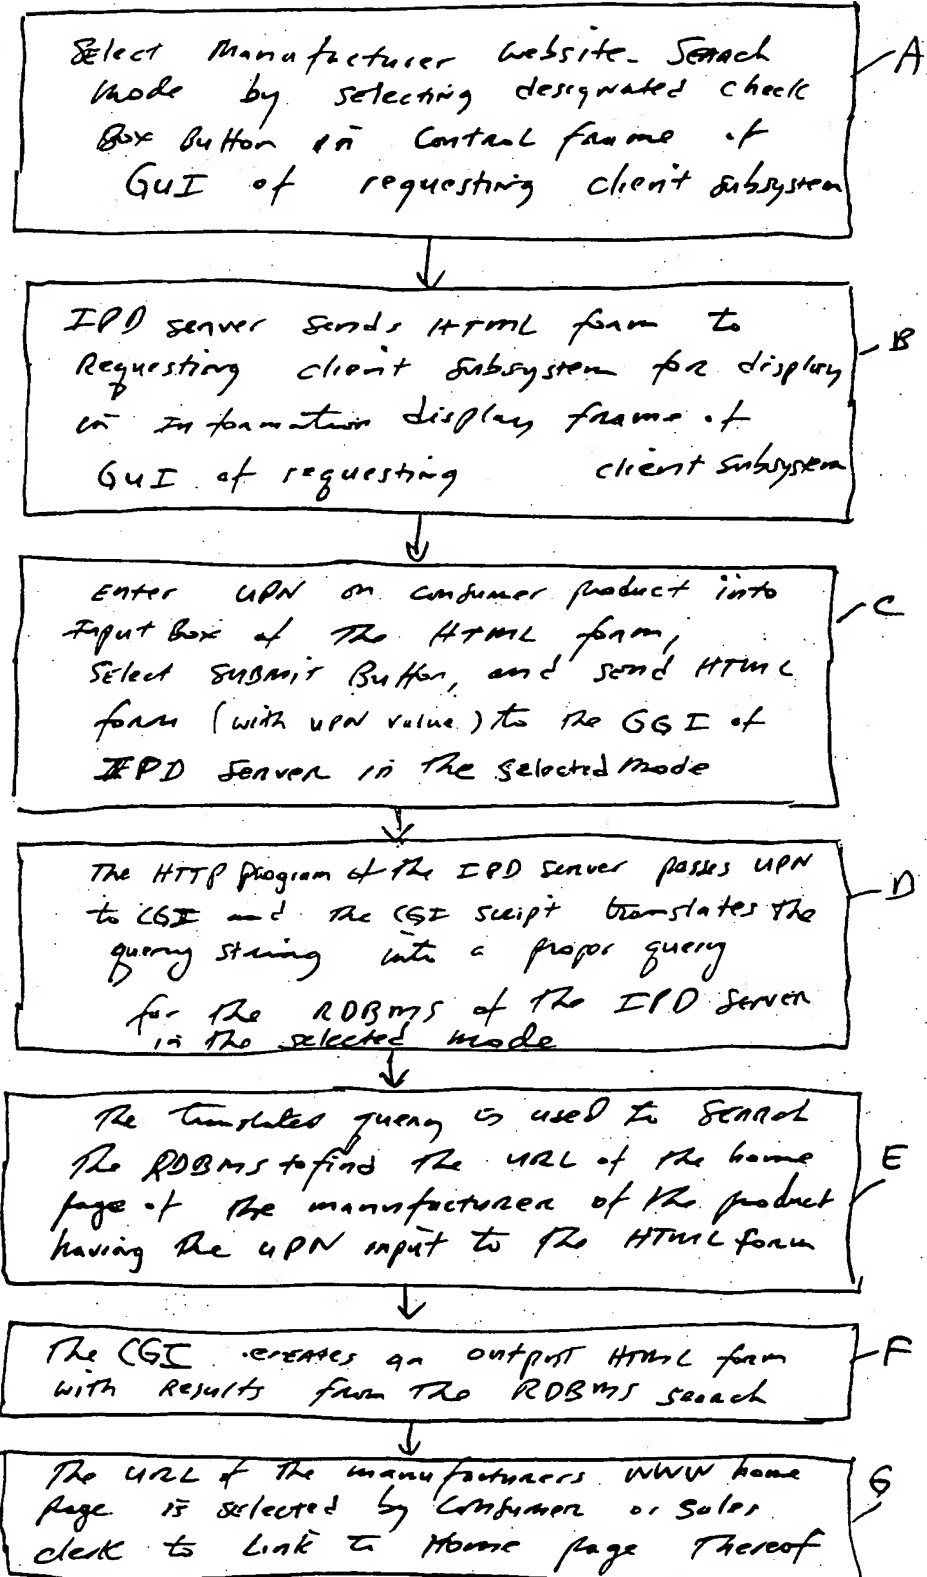 Select Manufacturer Website-Search
Mode by selecting designated check
Box Button in Control frame of
GUI of requesting client subsystem
A
IPD server sends HTML form to
Requesting client subsystem for display
in Information display frame of
GUI of requesting client subsystem
B
Enter UPN on consumer product into
Input Box of The HTML form,
Select SUBMIT Button, and send HTML
form (with UPN value) to the GGI of
IPD Server in The selected mode
C
The HTTP program of the IPD server passes UPN
to CGI and the CGI script translates the
query string into a proper query
for the RDBMS of the IPD Server
in The selected mode
D
The translated query is used to Search
The RDBMS to find the URL of the home
page of the manufacturer of the product
having the UPN input to The HTML form
E
The CGI creates an output HTML form
with Results from The RDBMS search
F
The URL of the manufacturers WWW home
page is selected by Consumer or Sales
clerk to Link to Home page Thereof
G